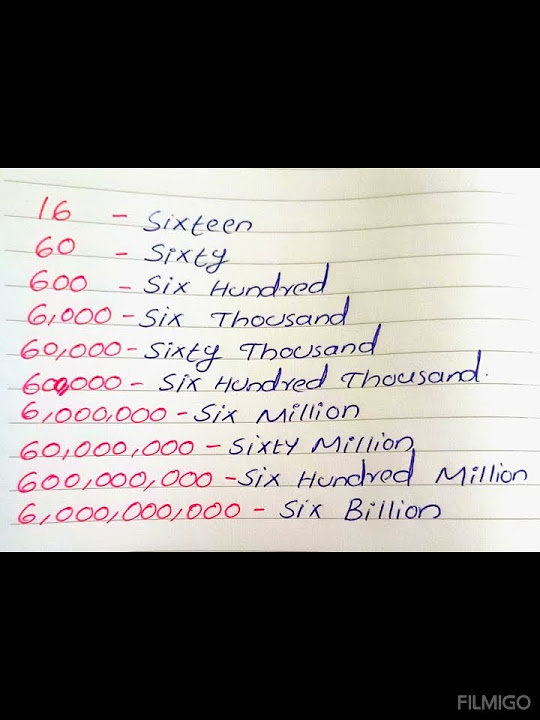 16 - Sixteen
60 - Sixty
600 - Six Hundred
6,000 - Six Thousand
60,000 - Sixty Thousand
600,000 - Six Hundred Thousand.
6,000,000 - Six Million
60,000,000 - Sixty Million
600,000,000 - Six Hundred Million
6,000,000,000 - Six Billion
FILMIGO